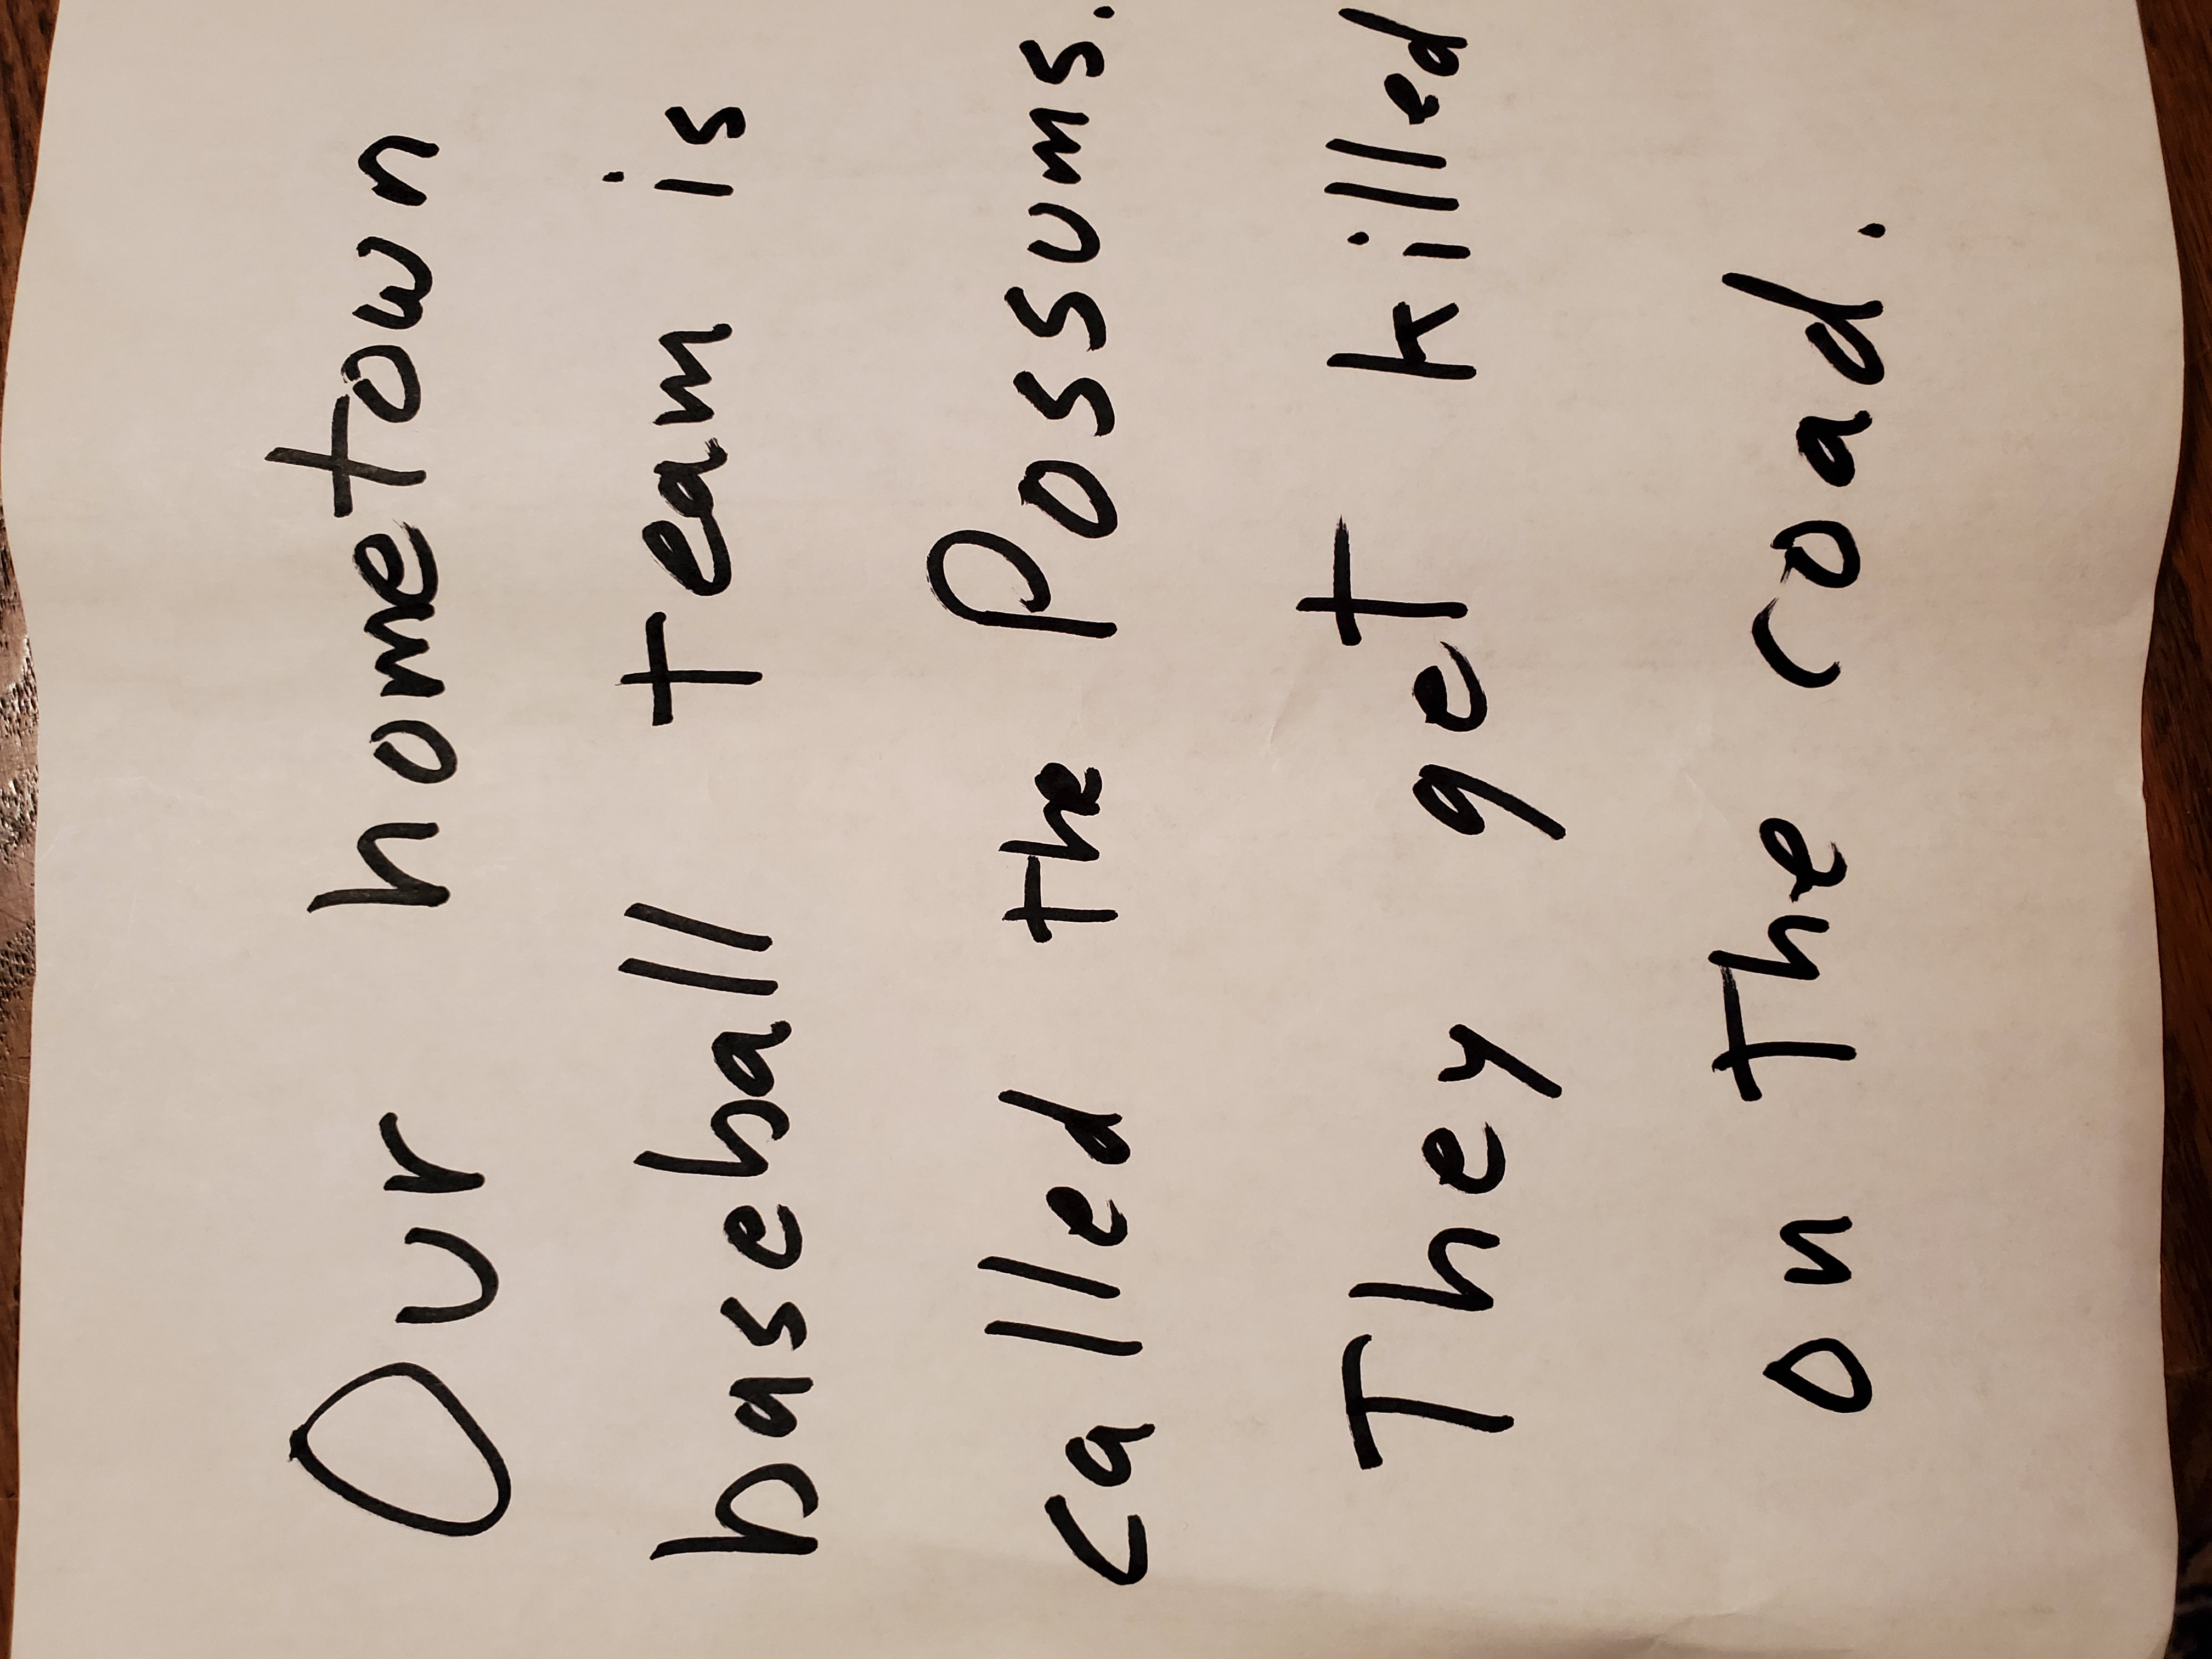 Our hometown
baseball team is
called the Possums.
They get killed
on the road.